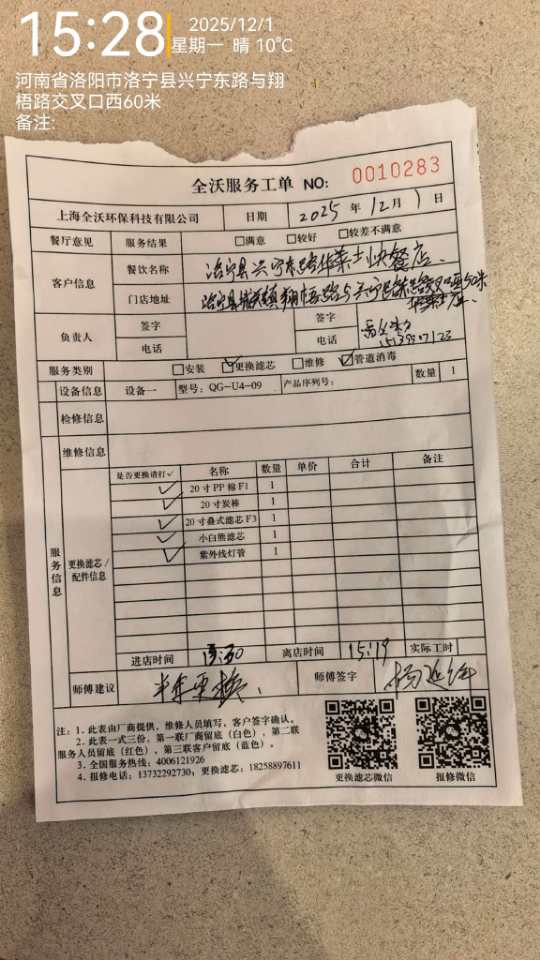 15:28
2025/12/1
星期一 晴 10℃
河南省洛阳市洛宁县兴宁东路与翔
梧路交叉口西60米
备注:
全沃服务工单 NO: 0010283
上海全沃环保科技有限公司 日期 2025 年 12 月 1 日
餐厅意见 服务结果 □满意 □较好 □较差不满意
客户信息 餐饮名称 洛宁县兴宁东路华莱士快餐店
门店地址 洛宁县 翔梧路与兴宁 60米
华莱士店
负责人 签字 签字
电话 电话
服务类别 □安装 ☑更换滤芯 □维修 ☑管道消毒
设备信息 设备一 型号: QG-U4-09 产品序列号: 数量 1
检修信息
维修信息
服务信息 更换滤芯/配件信息
是否更换请打✓ 名称 数量 单价 合计 备注
✓ 20寸PP棉F1 1
✓ 20寸炭棒 1
✓ 20寸叠式滤芯F3 1
✓ 小白熊滤芯 1
✓ 紫外线灯管 1
进店时间 离店时间 15:19 实际工时
师傅建议 半年更换. 师傅签字
注: 1. 此表由厂商提供, 维修人员填写, 客户签字确认。
2. 此表一式三份, 第一联厂商留底 (白色), 第二联
服务人员留底 (红色), 第三联客户留底 (蓝色)。
3. 全国服务热线: 4006121926
4. 报修电话: 13732292730; 更换滤芯: 18258897611
更换滤芯微信 报修微信